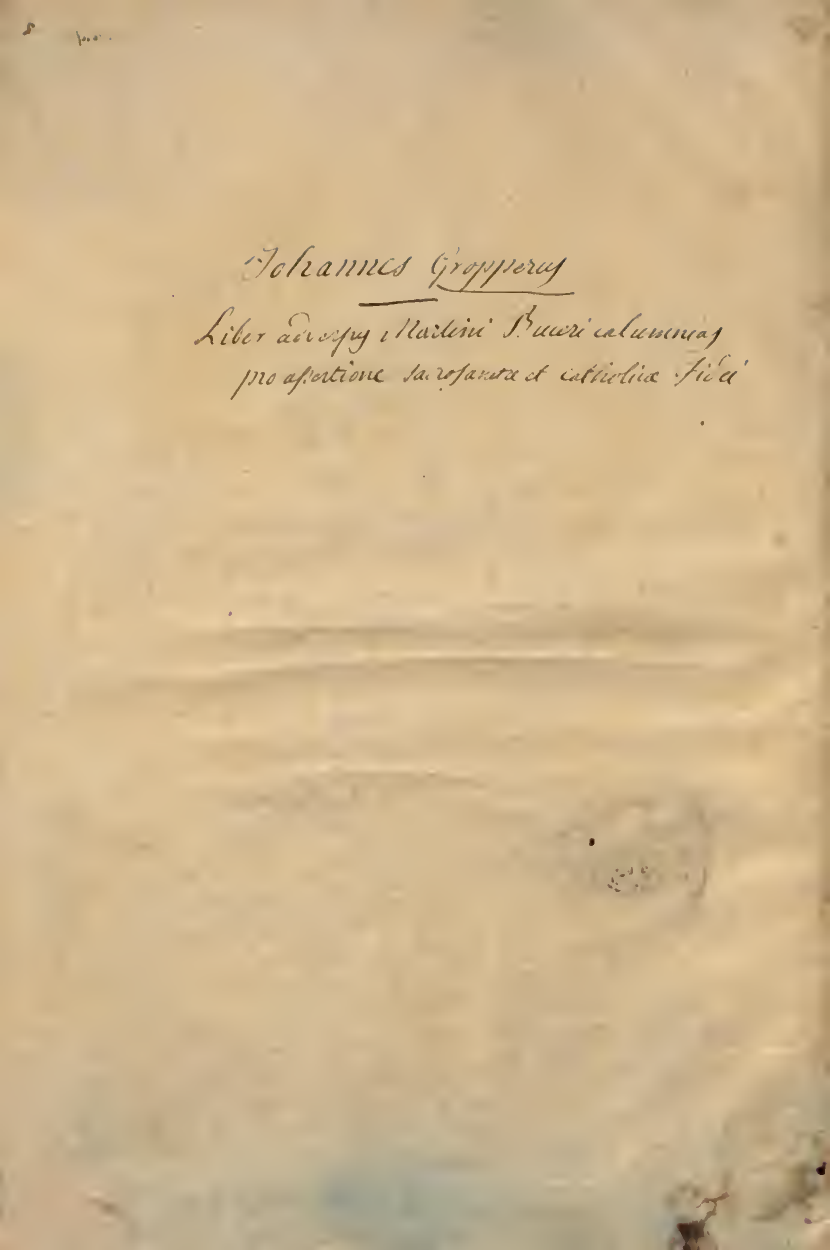 Johannes Gropperus
Liber adversus Martini Buceri calumnias
pro assertione sacrosanctæ et catholicæ fidei